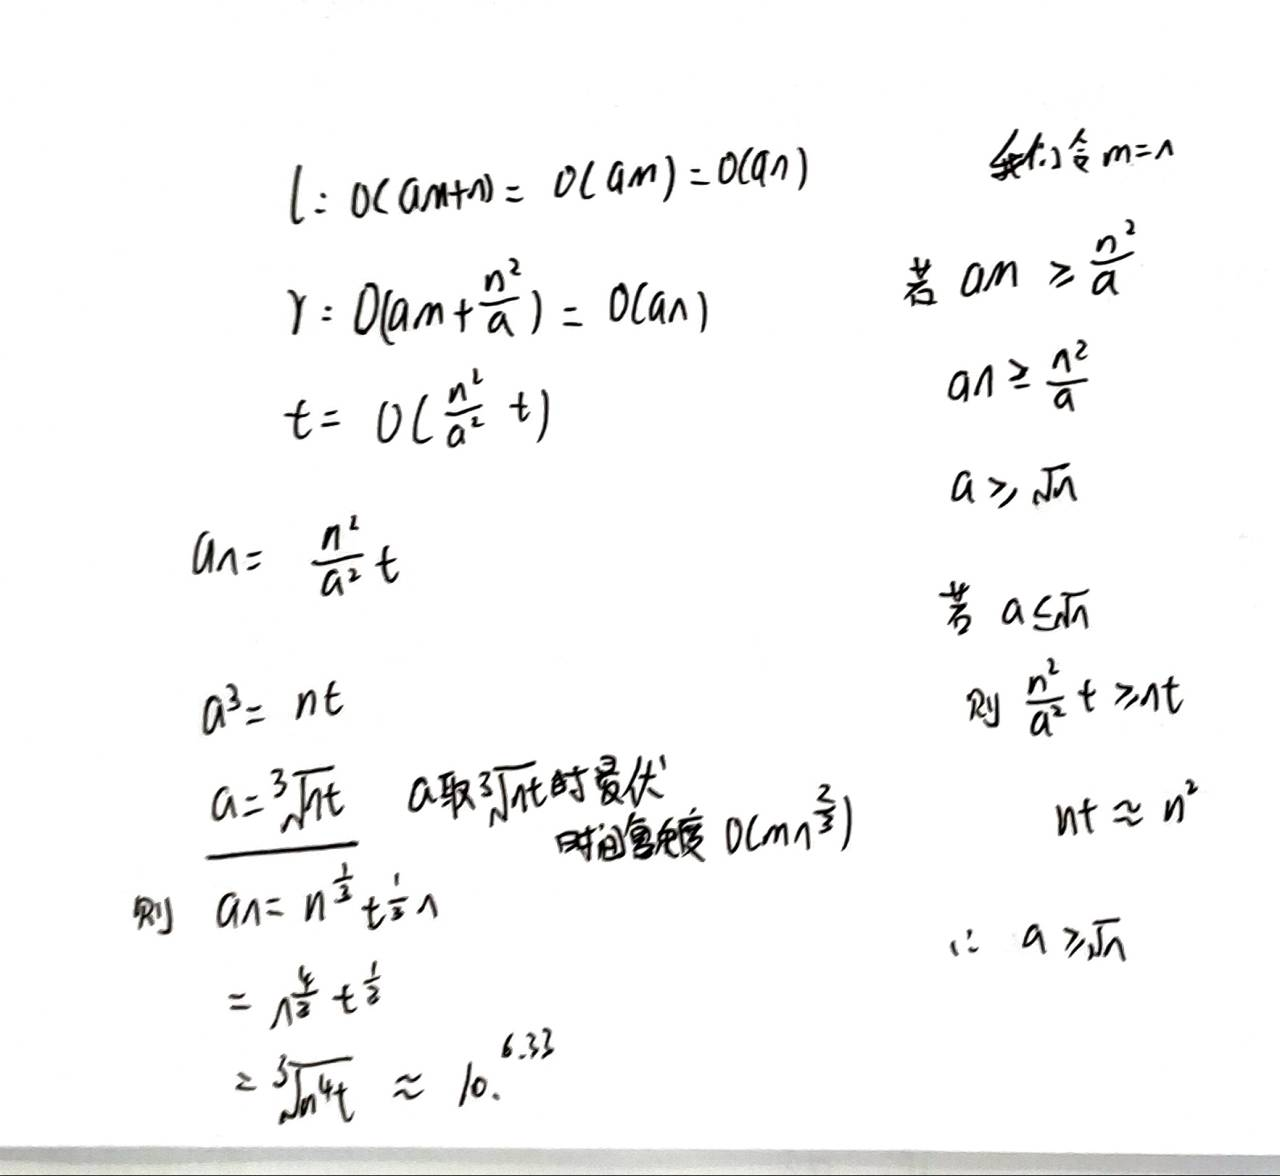 我们令 m=n
l: O(am+n) = O(am) = O(an)
r: O(am + n²/a) = O(an)
t = O(n²/a² t)
an = n²/a² t
a³ = nt
a = ³√nt a取³√nt时最优
时间复杂度 O(mn^(2/3))
则 an = n^(1/3) t^(1/3) n
= n^(4/3) t^(1/3)
= ³√n⁴t ≈ 10.^6.33
若 am ≥ n²/a
an ≥ n²/a
a ≥ √n
若 a ≤ √n
则 n²/a² t ≥ nt
nt ≈ n²
∴ a ≥ √n